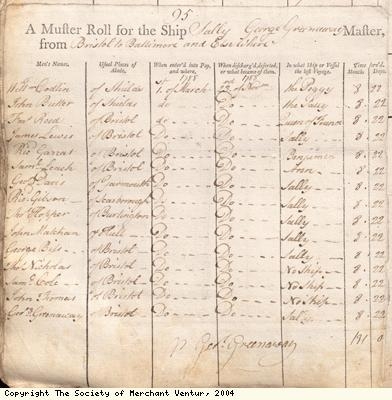 95
A Muster Roll for the Ship Sally George Greenaway Master,
from Bristol to Baltimore and Elsewhere
Men's Names. Usual Places of Abode, When enter'd into Pay, and where, When discharg'd, deserted, or what became of them. In what Ship or Vessel the last Voyage. Time Months Days.
Will Codlin of Shields 1 of March the Peggy 8 22
John Butler of Shields do Do the Sally 8 22
Reed of Bristol do Do 8 22
James Lewis of Bristol Do Do Sally 8 22
of Bristol Do Do Benjamin 8 22
Saml. Leach of Bristol Do Do Ann 8 22
Geo Davis of Yarmouth Do Do Sally 8 22
Gibson of Scarborough Do Do Sally 8 22
Hooper of Burlington Do Do Sally 8 22
John of Hull Do Do Sally 8 22
George Biss of Bristol Do Do Sally 8 22
Nicholas of Bristol Do Do No Ship 8 22
Saml. Cole of Bristol Do Do No Ship 8 22
John Thomas of Bristol Do Do No Ship 8 22
Geo. Greenaway of Bristol Do Do Sally 8 22
131 0
P Geo. Greenaway
Copyright The Society of Merchant Ventur, 2004